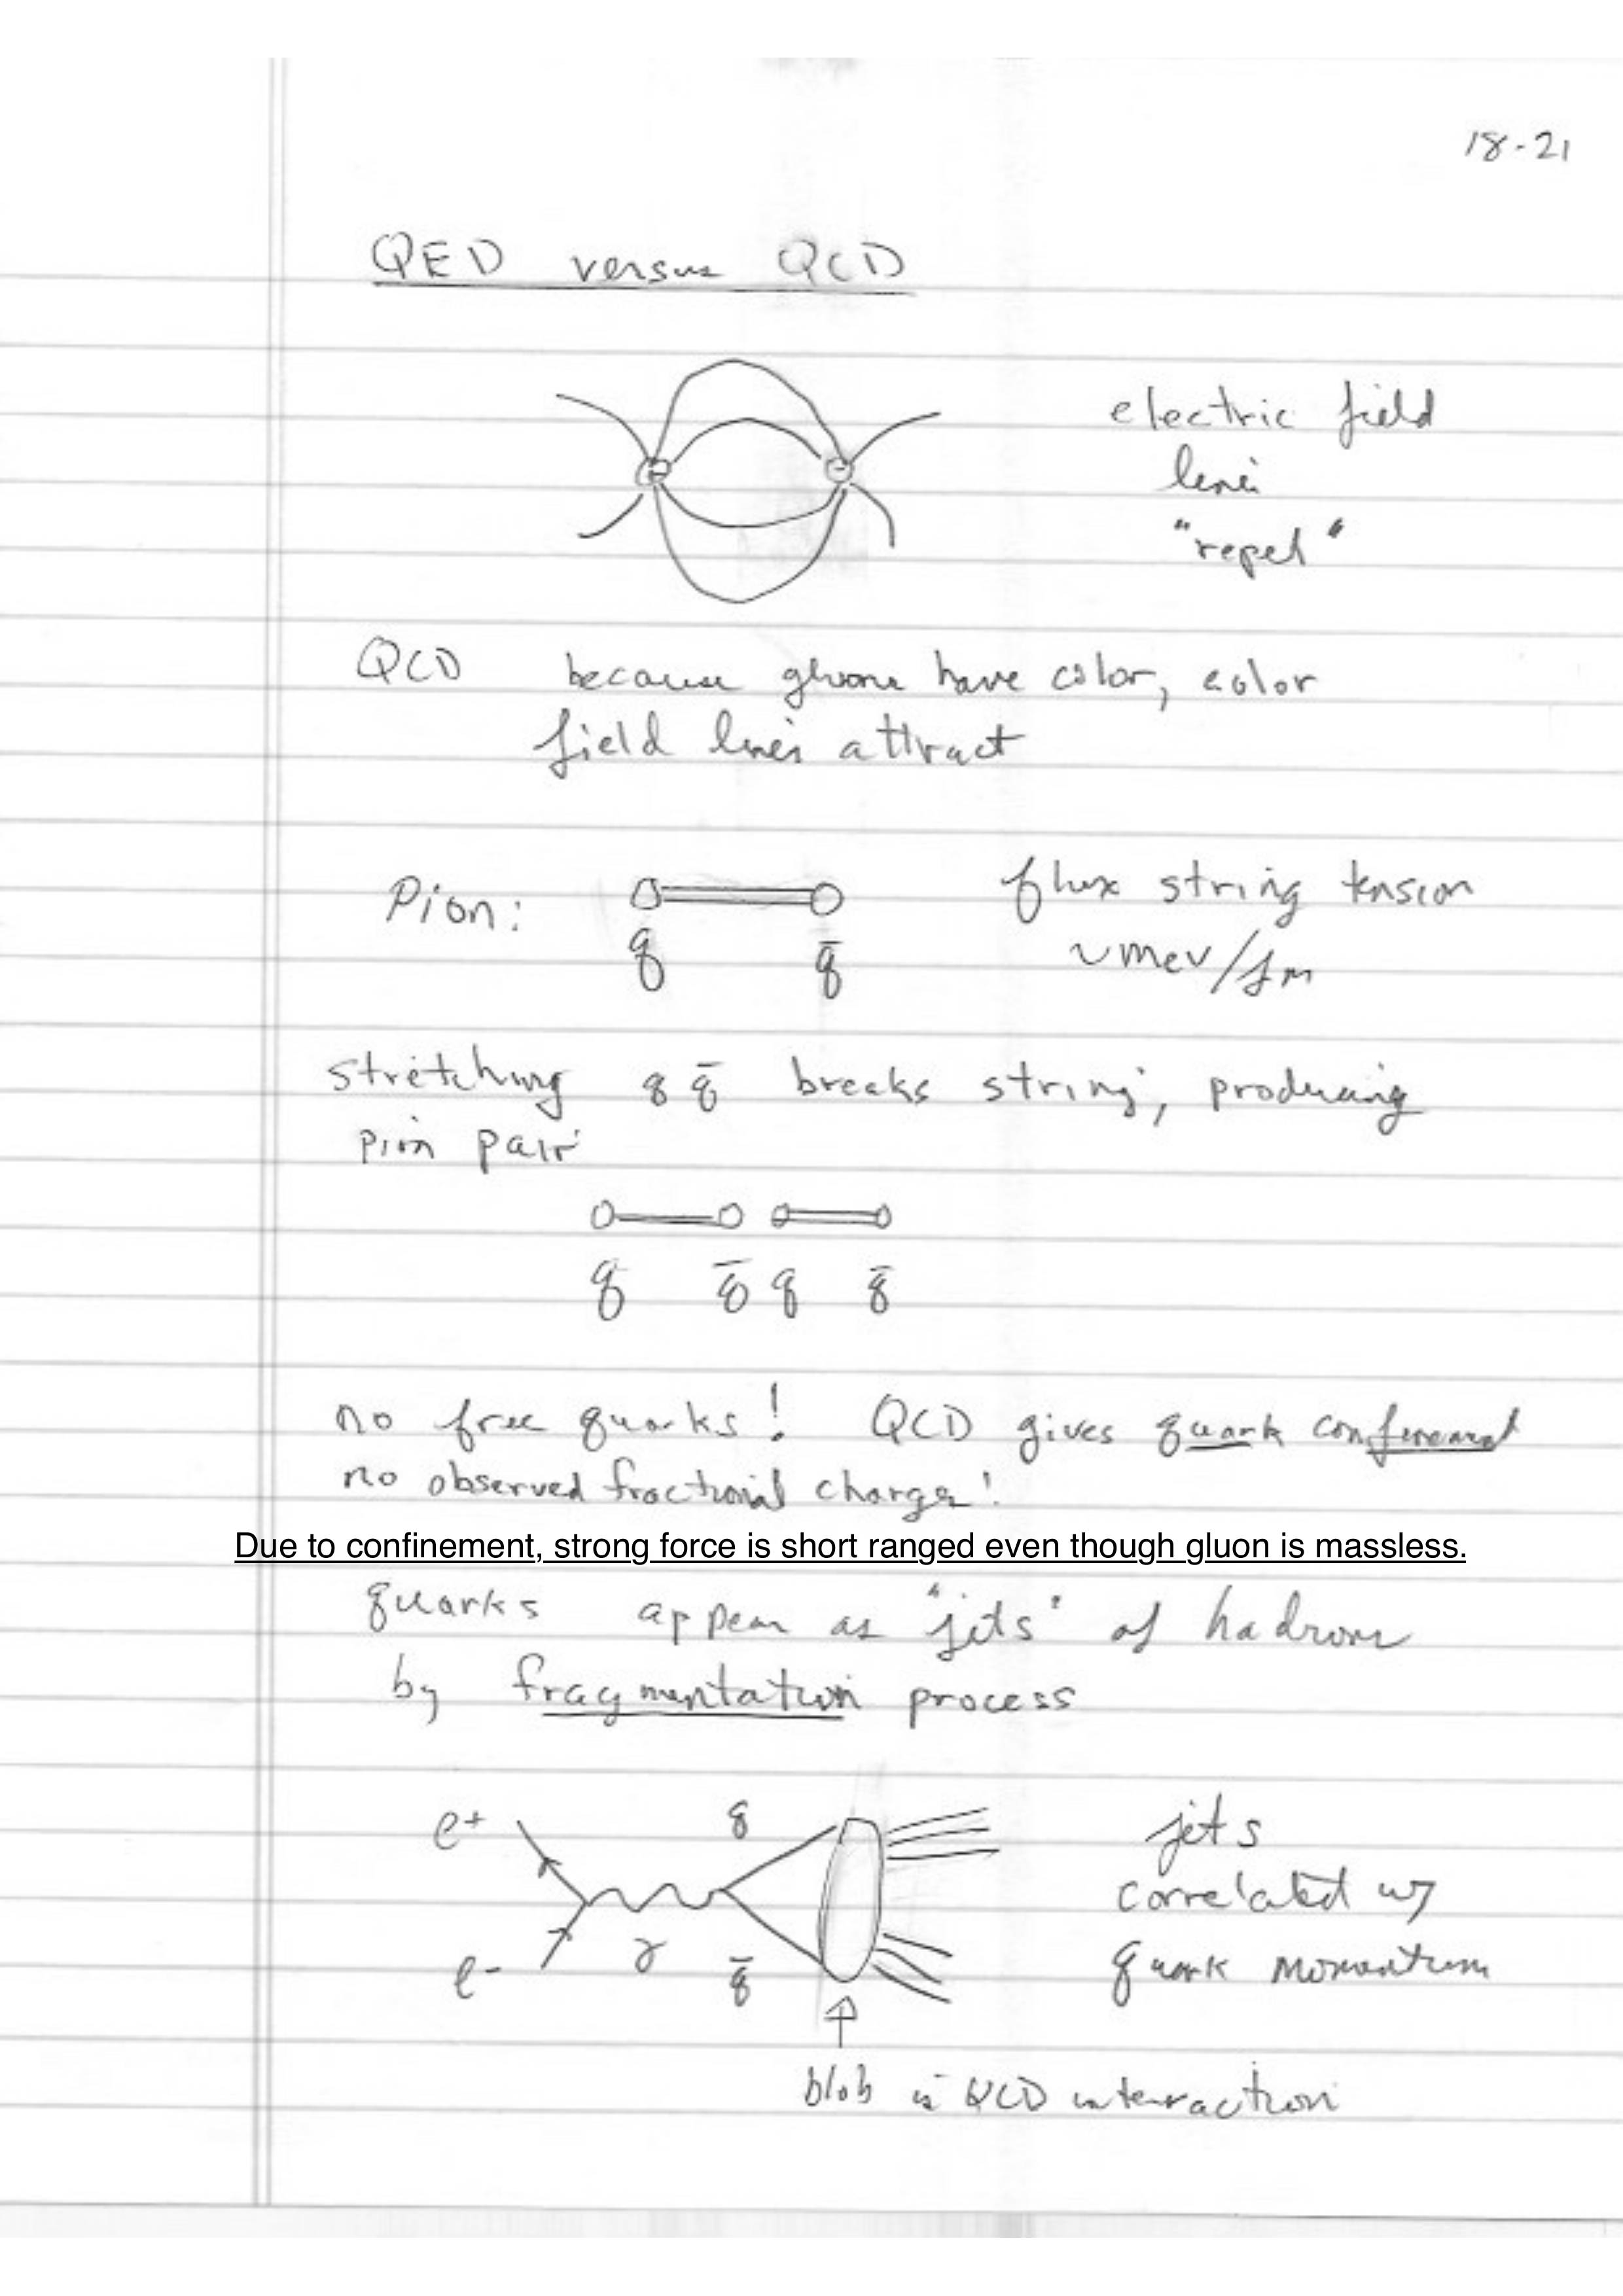 18-21
QED versus QCD
electric field
lines
"repel"
QCD because gluons have color, color
field lines attract
Pion:
flux string tension
q q̄
~ mev/fm
stretching q q̄ breaks string, producing
pion pair
q q̄ q q̄
no free quarks! QCD gives quark confinement
no observed fractional charge!
Due to confinement, strong force is short ranged even though gluon is massless.
quarks appear as "jets" of hadrons
by fragmentation process
e+ q jets
correlated w/
e- γ q̄ quark momentum
blob is QCD interaction